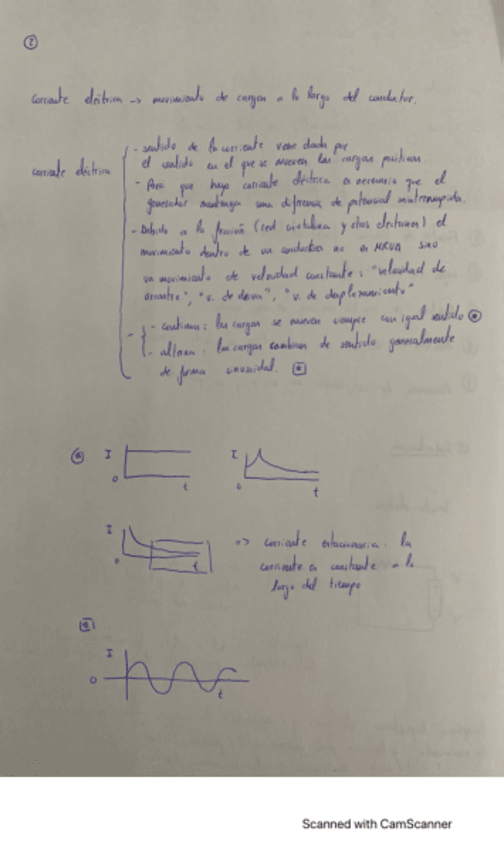 ②
Corriente eléctrica → movimiento de cargas a lo largo del conductor.
corriente eléctrica
- sentido de la corriente viene dada por
el sentido en el que se mueven las cargas positivas.
- Para que haya corriente eléctrica es necesario que el
generador mantenga una diferencia de potencial ininterrumpida.
- Debido a la fricción (red cristalina y otros electrones) el
movimiento dentro de un conductor no es MRUA sino
un movimiento de velocidad constante: "velocidad de
arrastre", "v. de deriva", "v. de desplazamiento"
- continua: las cargas se mueven siempre con igual sentido
- alterna: las cargas cambian de sentido generalmente
de forma sinusoidal.
I
0
t
I
0
t
I
0
t
=> corriente estacionaria: la
corriente es constante a lo
largo del tiempo
I
0
t
Scanned with CamScanner